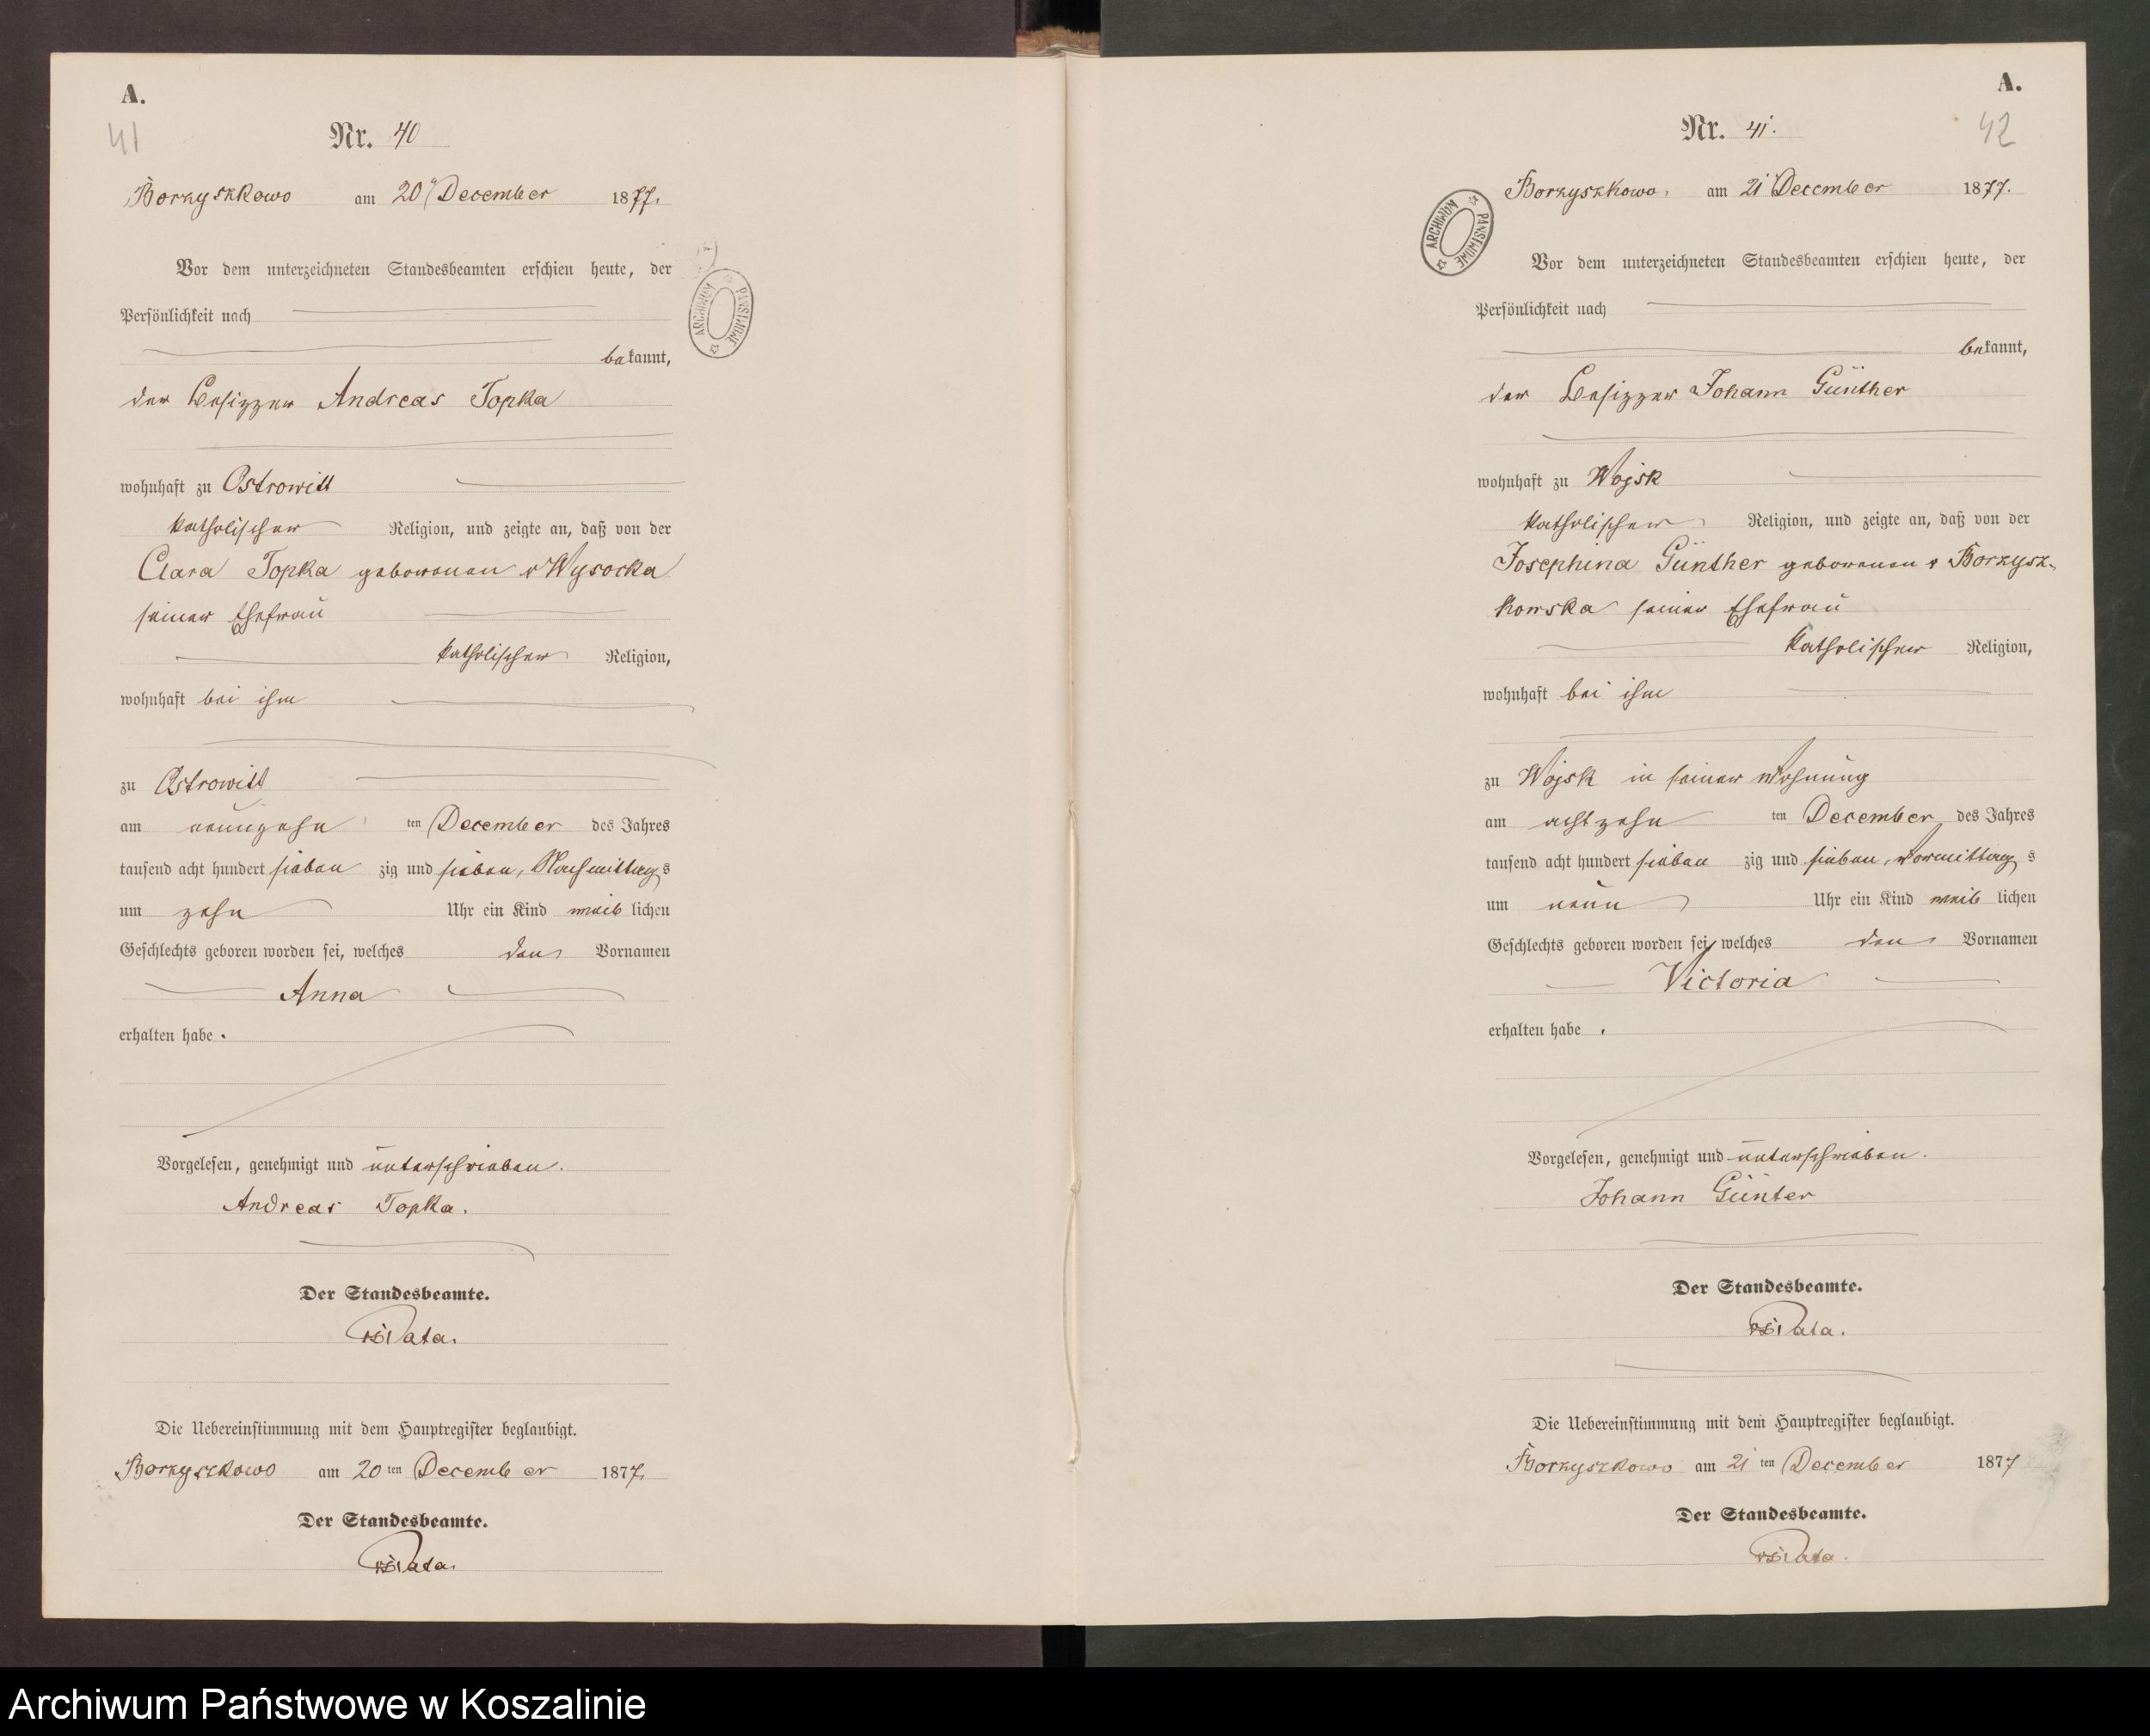 A.
41
Nr. 40
Borzyszkowo am 20 December 1877.
Vor dem unterzeichneten Standesbeamten erschien heute, der
Persönlichkeit nach
bekannt,
der Besizzer Andreas Topka
wohnhaft zu Ostrowitt
katholischer Religion, und zeigte an, daß von der
Clara Topka geborenen v Wysocka
seiner Ehefrau
katholischer Religion,
wohnhaft bei ihm
zu Ostrowitt
am neunzehn ten December des Jahres
tausend acht hundert sieben zig und sieben, Nachmittags
um zehn Uhr ein Kind weiblichen
Geschlechts geboren worden sei, welches den Vornamen
Anna
erhalten habe.
Vorgelesen, genehmigt und unterschrieben.
Andreas Topka.
Der Standesbeamte.
Die Uebereinstimmung mit dem Hauptregister beglaubigt.
Borzyszkowo am 20 ten December 1877.
Der Standesbeamte.
ARCHIWUM PAŃSTWOWE
A.
42
Nr. 41.
Borzyszkowo. am 21 December 1877.
Vor dem unterzeichneten Standesbeamten erschien heute, der
Persönlichkeit nach
bekannt,
der Besizzer Johann Günther
wohnhaft zu Wojsk
katholischer Religion, und zeigte an, daß von der
Josephina Günther geborenen v Borzysz-
kowska seiner Ehefrau
katholischer Religion,
wohnhaft bei ihm
zu Wojsk in seiner Wohnung
am achtzehn ten December des Jahres
tausend acht hundert sieben zig und sieben, Vormittags
um neun Uhr ein Kind weiblichen
Geschlechts geboren worden sei, welches den Vornamen
Victoria
erhalten habe.
Vorgelesen, genehmigt und unterschrieben.
Johann Günter
Der Standesbeamte.
Die Uebereinstimmung mit dem Hauptregister beglaubigt.
Borzyszkowo am 21 ten December 1877
Der Standesbeamte.
ARCHIWUM PAŃSTWOWE
Archiwum Państwowe w Koszalinie